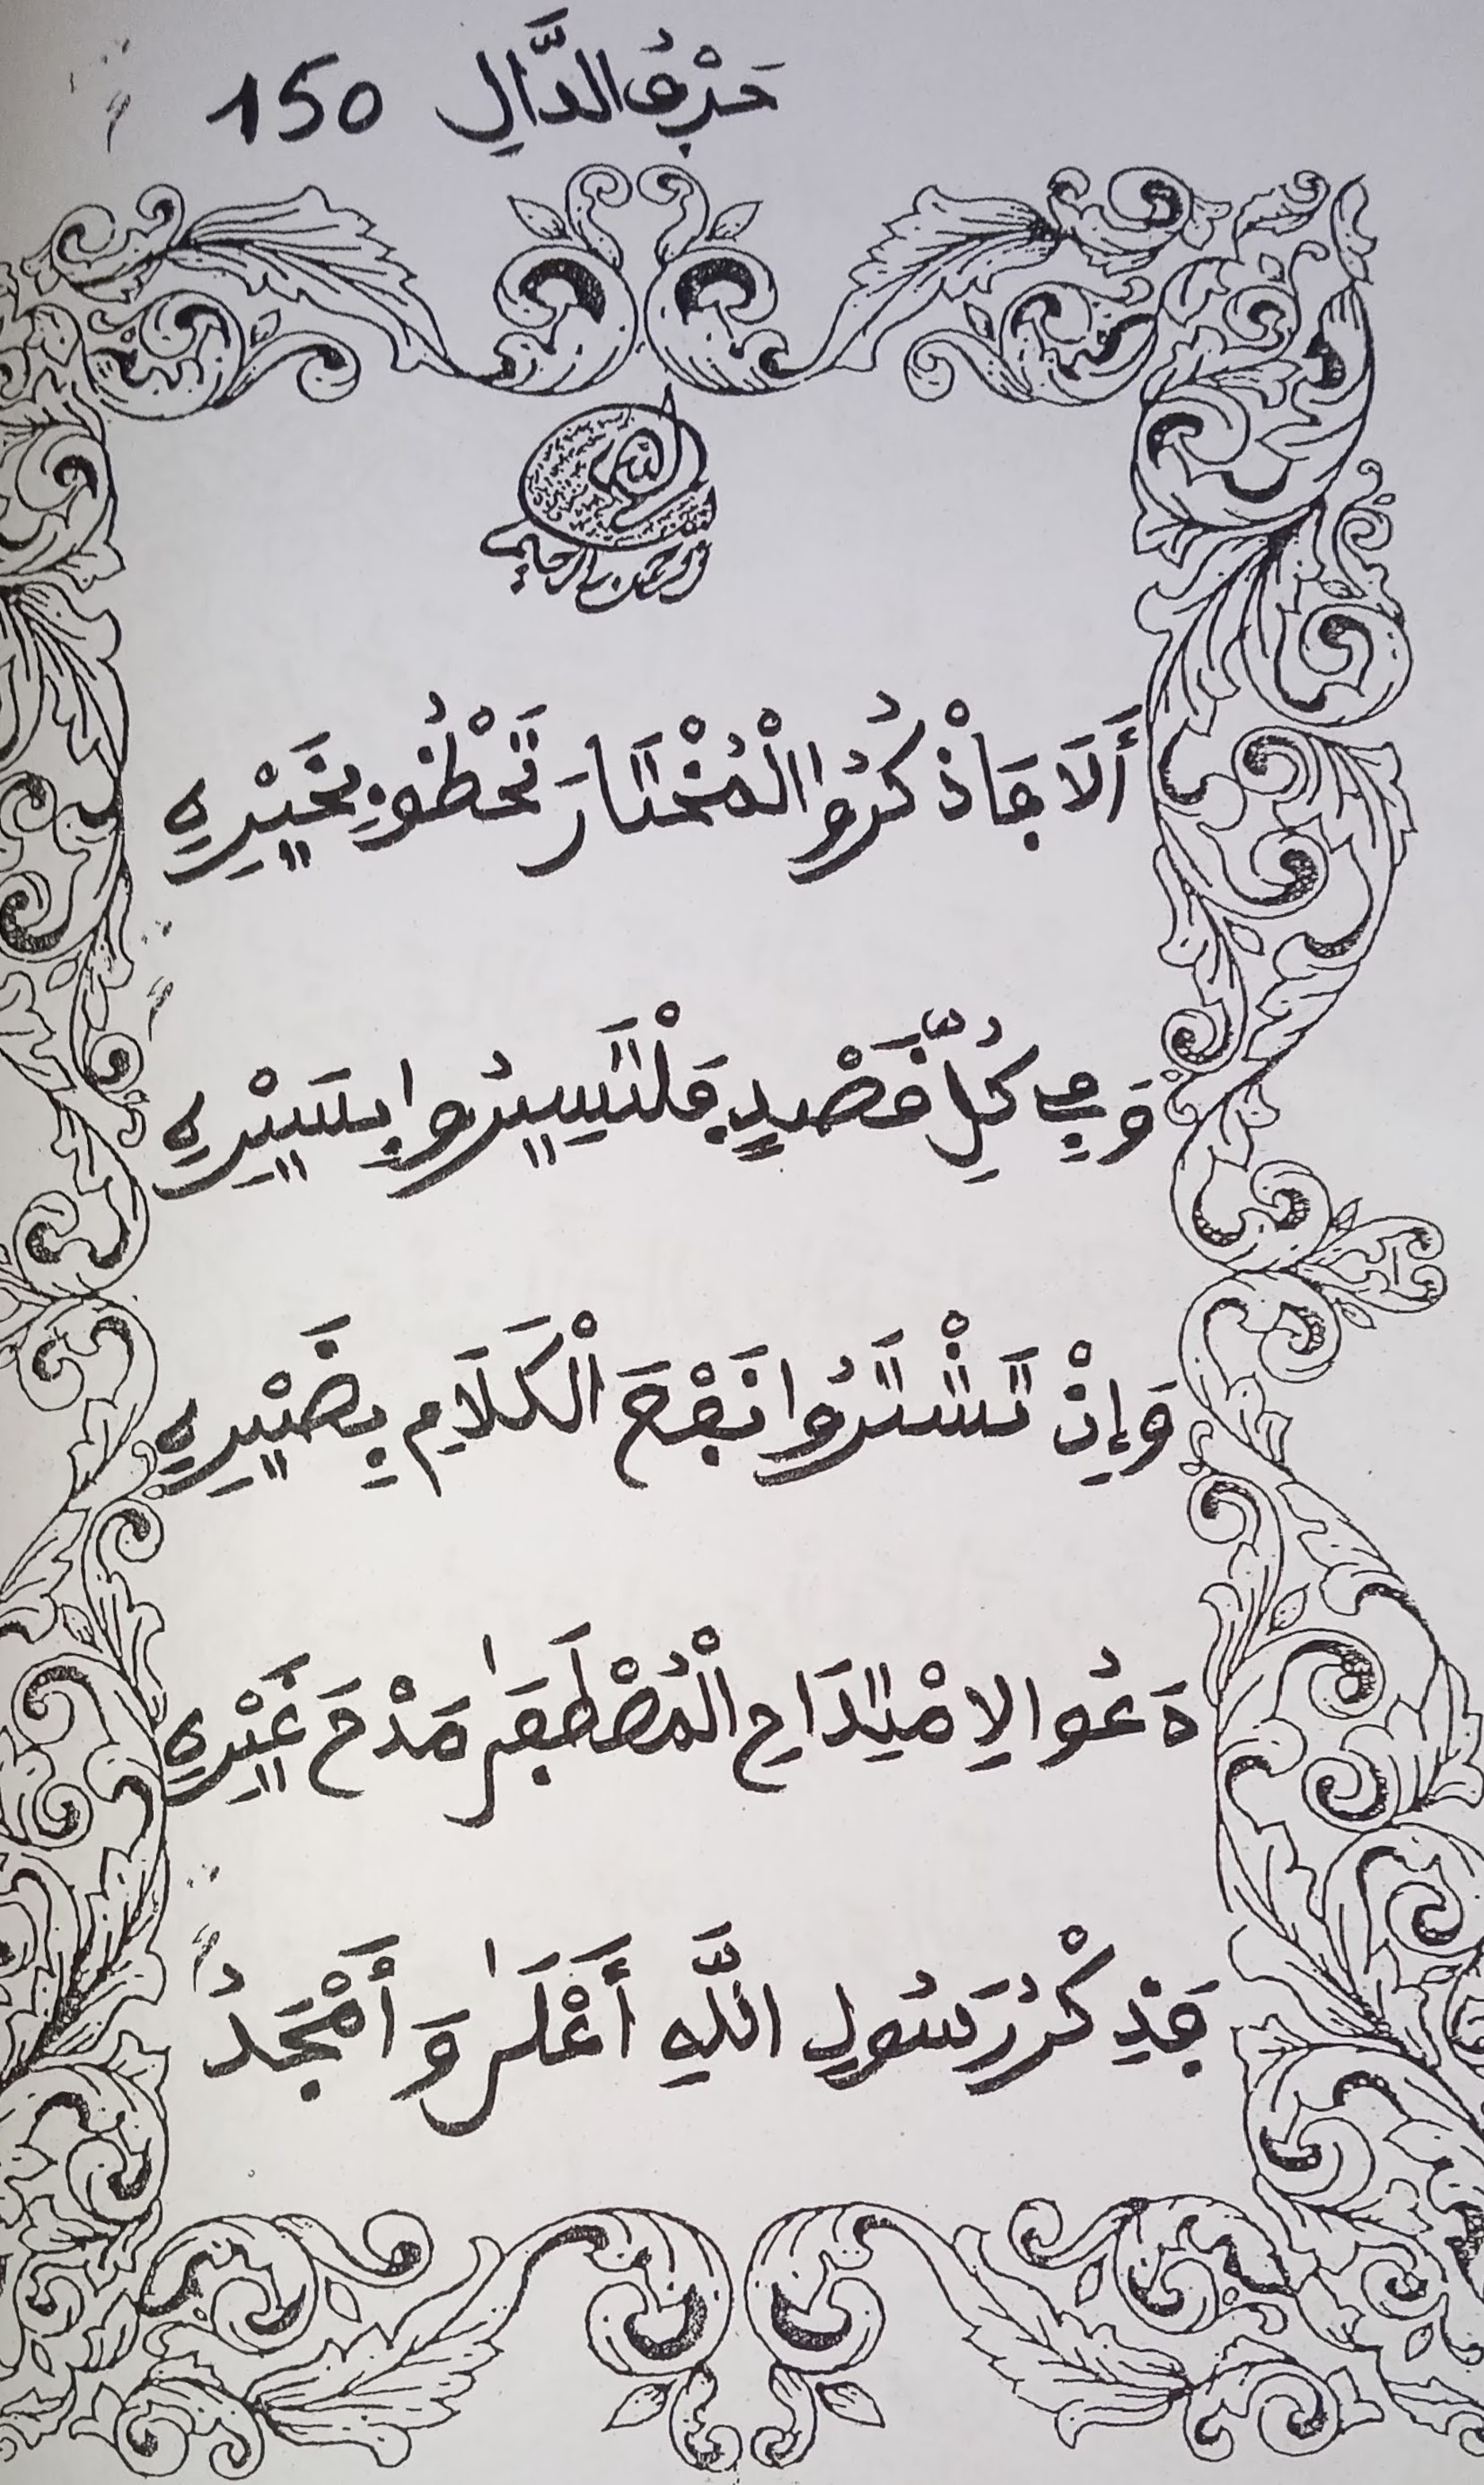 حَرْفُ الدَّالِ 150
بسم الله الرحمن الرحيم
أَلَا فَاذْكُرُوا الْمُخْتَارَ تَحْظُوْا بِخَيْرِهِ
وَفِي كُلِّ قَصْدٍ فَلْتَسِيرُوا بِسَيْرِهِ
وَإِنْ تَشْتَرُوا نَفْحَ الْكَلَامِ بِضَيْرِهِ
دَعُوا لِامْتِدَاحِ الْمُصْطَفَىٰ مَدْحَ غَيْرِهِ
فَذِكْرُ رَسُولِ اللَّهِ أَعْلَىٰ وَأَمْجَدُ